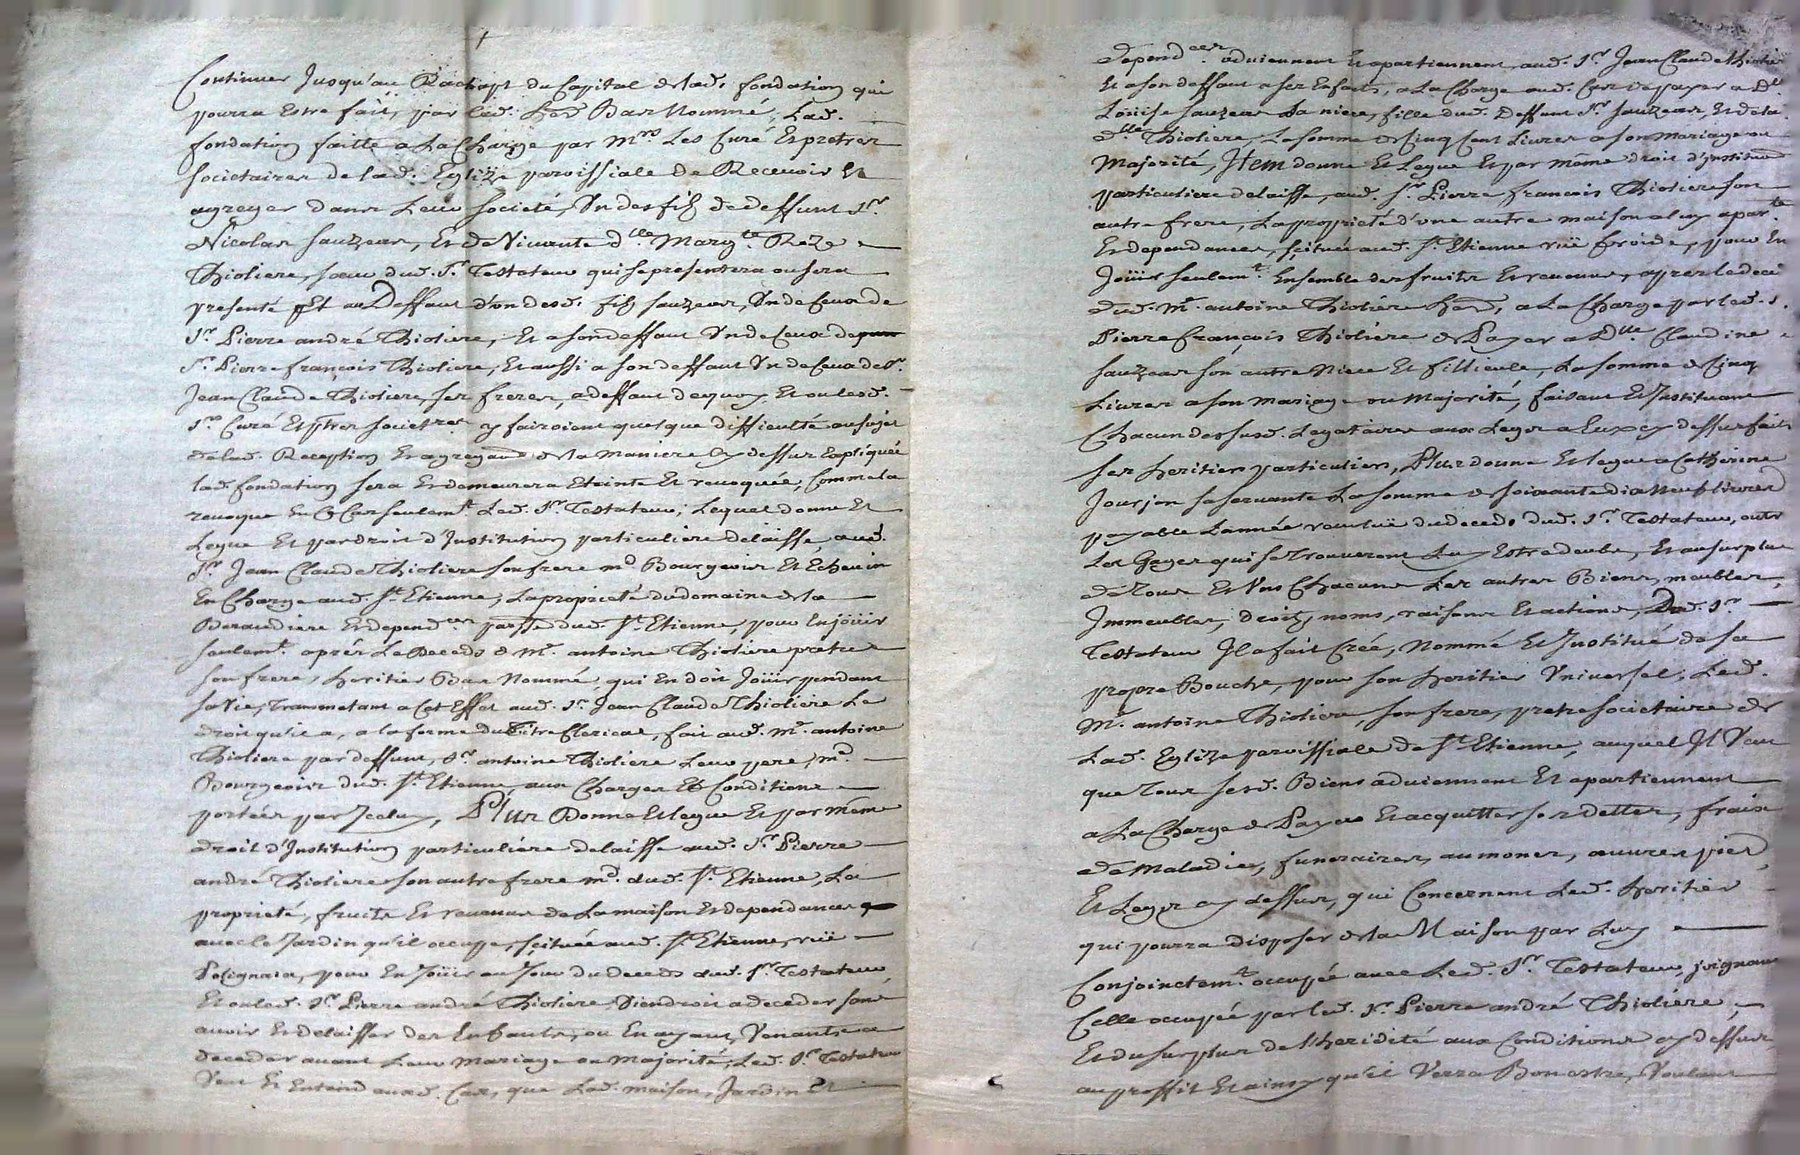 Continuer Jusqu'au Rachapt du Capital de lad. fondation qui
pourra Estre fait, par led. her. Bas Nommé, Lad.
fondation faitte a La Charge par Mrs Les Curé Et pretres
societaires de lad. Eglize paroissiale de Recevoir Et
agreger dans Leur société, Un des fils de deffunt Sr.
Nicolas Sauzeas, Et de Vivante dlle Margte. Reze
Thioliere, sœur dud. Sr. Testateur qui se presentera ou sera
presenté Et au Deffaut d'un desd. fils Sauzeas, Un de Ceux de
Sr. Pierre andré Thioliere, Et a son deffaut Un de Ceux de
Sr. Pierre françois Thioliere, Et aussi a son deffaut Un de Ceux de Sr.
Jean Claude Thioliere, ses freres, a deffaut de quoy Et ou lesd.
Srs Curé Et ptres societres y fairoient quelque difficulté au sujet
de lad. Reception Et agregaon de la maniere Cy dessus Expliquée
lad. fondation sera Et demeurera Eteinte Et revoquée, Comme la
revoque En Ce Cas seulemt. Led. Sr. Testateur; Lequel donne Et
Legue Et par droit d'Institution particuliere delaisse, aud.
Sr. Jean Claude Thioliere son frere md Bourgeois Et Echevin
En Charge aud. St. Etienne, La proprieté du domaine de la
Beraudiere Et dependces parsse dud. St. Etienne, pour En joüir
seulemt. aprés Le Deceds de Mr. antoine Thioliere pretre
son frere, heritier Bas Nommé, qui En doit Joüir pendant
sa Vie, Transmetant a Cet Effet aud. Sr. Jean Claude Thioliere Le
droit qu'il a, a la forme du titre Clerical, fait aud. Mr. antoine
Thioliere par deffunt, Sr. antoine Thioliere Leur pere, md.
Bourgeois dud. St. Etienne, aux Charges Et Conditions
portées par Iceluy, Plus Donne Et legue Et par meme
droit d'Institution particuliére delaisse aud. Sr. Pierre
andré Thioliere son autre frere md. dud. St. Etienne, La
proprieté, fruits Et revenus de La maison Et dependances
avec le Jardin qu'il occupe, scituée aud. St. Etienne, ruë
Polignais, pour En Joüir au Jour du deceds dud. Sr. Testateur
Et ou led. Sr. Pierre andré Thioliere Viendroit a deceder sans
avoir Et delaisser des Enfants, ou En ayant, Venants a
deceder avant Leur Mariage ou Majorité, Led. Sr. Testateur
Veut Et Entend aud. Cas, que Lad. maison, Jardin Et
dependces adviennent Et apartiennent, aud. Sr. Jean Claude Thioliere
Et a son deffaut a ses Enfants, a La Charge aud. Cas de payer a Dlle
Loüise Sauzeas Sa niece, fille dud. Deffunt Sr. Sauzeas, Et de la
dlle Thioliere, La somme de Cinq Cent Livres a son Mariage ou
Majorité, Item donne Et Legue Et par meme droit d'Institution
particuliere delaisse, aud. Sr. Pierre françois Thioliere son
autre frere, La proprieté d'une autre maison a luy apartte
Et dependances, scituée aud. St. Etienne ruë froide, pour En
Joüir seulemt. Ensemble des fruits Et revenus, apres le decés
dud. Mr. antoine Thioliére her., a La Charge par led. S.
Pierre François Thioliére de Payer a Dlle. Claudine
Sauzeas son autre Niece Et fillieule, La somme de Cinq
Livres a son Mariage ou Majorité, faisant Et Instituant
Chacun des susd. Legataires aux Legs a Eux cy dessus faits
ses heritiers particuliers, Plus donne Et legue a Catherine
Jourjon sa servante La somme de soixante dix Neuf livres
payable L'année revoluë du deceds dud. Sr. Testateur, outre
Les Gages qui se trouveront Luy Estre deubs, Et au surplus
de Tous Et Uns Chacuns Les autres Biens, meubles,
Immeubles, droits, noms, raisons Et actions, Led. Sr.
Testateur Il a fait Créé, Nommé Et Institué de sa
propre Bouche, pour son heritier Universel, Led.
Mr. antoine Thioliere, son frere, pretre societaire de
Lad. Eglize paroissiale de St. Etienne, auquel Il Veut
que Tous sesd. Biens adviennent Et apartiennent
a La Charge de Payer Et acquitter ses dettes, fraix
de Maladies, funeraires, aumones, œuvres pies,
Et Legs cy dessus, qui Concernent Led. heritier
qui pourra disposer de la Maison par Luy
Conjoinctemt. occupée avec Led. Sr. Testateur, joignant
Celle occupée par led. Sr. Pierre andré Thioliére,
Et du surplus de l'heridité aux Conditions cy dessus,
au proffit Et ainsy qu'il Verra Bon estre, Voulant